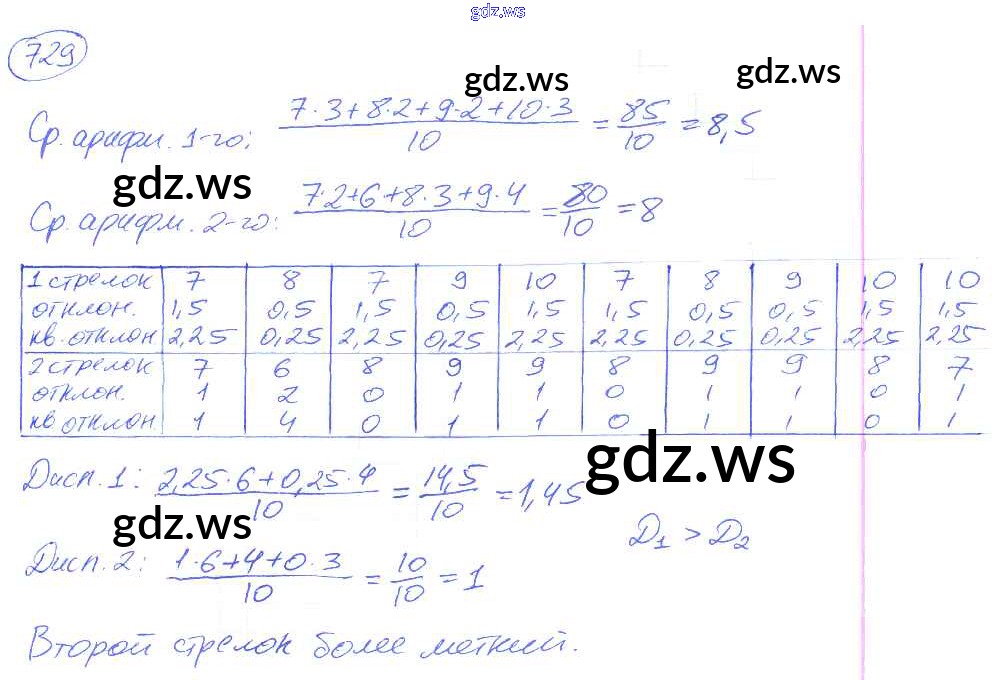 gdz.ws
729
gdz.ws
gdz.ws
Ср. арифм. 1-го: (7·3+8·2+9·2+10·3)/10 = 85/10 = 8,5
gdz.ws
Ср. арифм. 2-го: (7·2+6+8·3+9·4)/10 = 80/10 = 8
1 стрелок 7 8 7 9 10 7 8 9 10 10
отклон. 1,5 0,5 1,5 0,5 1,5 1,5 0,5 0,5 1,5 1,5
кв. отклон 2,25 0,25 2,25 0,25 2,25 2,25 0,25 0,25 2,25 2,25
2 стрелок 7 6 8 9 9 8 9 9 8 7
отклон. 1 2 0 1 1 0 1 1 0 1
кв отклон. 1 4 0 1 1 0 1 1 0 1
gdz.ws
Дисп. 1: (2,25·6+0,25·4)/10 = 14,5/10 = 1,45
gdz.ws
D₁ > D₂
Дисп. 2: (1·6+4+0·3)/10 = 10/10 = 1
Второй стрелок более меткий.